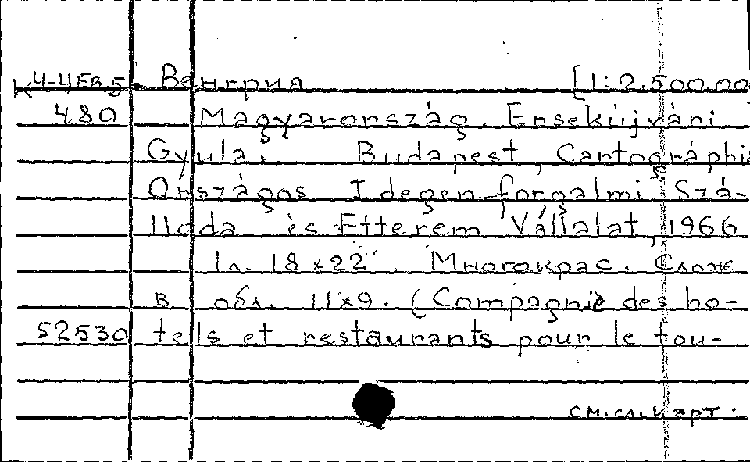 К4-4Ев5 Венгрия [1:2.500.00
480 Magyarország. Ersekújvári
Gyula. Budapest, Cartográphia
Országos Idegenforgalmi Szá-
lloda és Etterem Vállalat, 1966
1л. 18x22. Многокрас. Слож
в обл. 11x9. (Compagnie des ho-
52530 tels et restaurants pour le tou-
см.сл.карт.